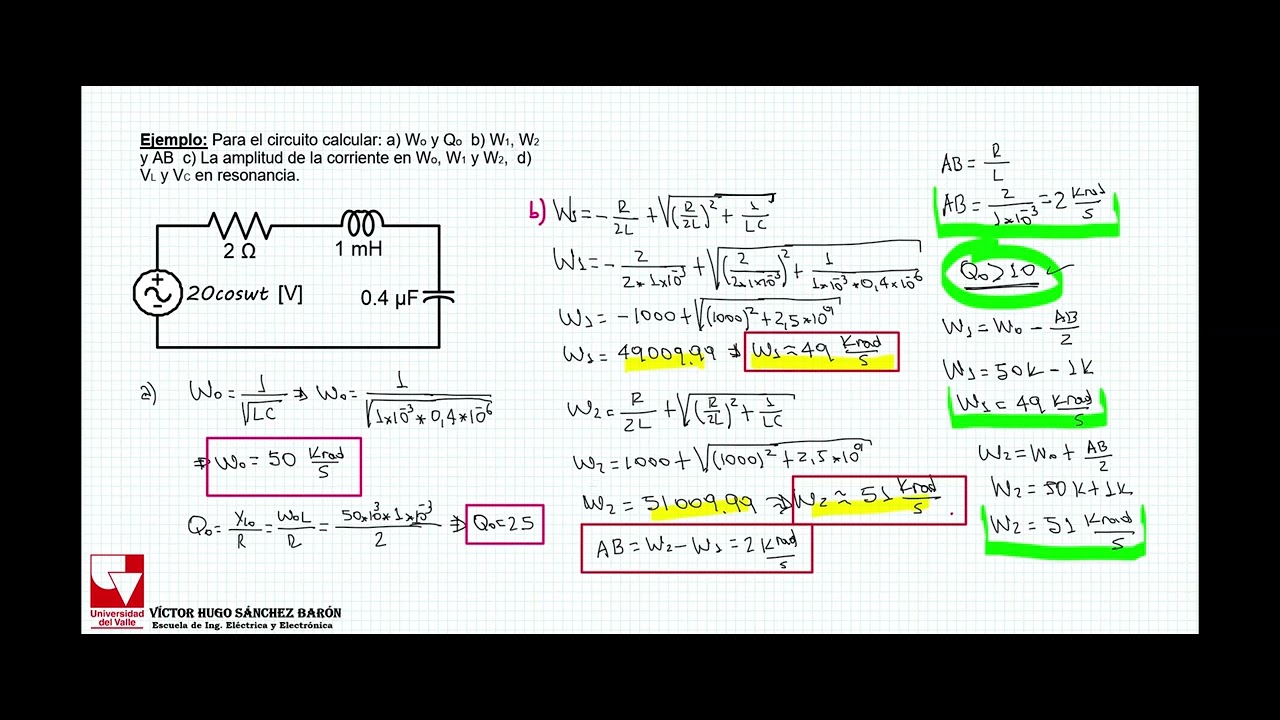 Ejemplo: Para el circuito calcular: a) Wo y Qo b) W1, W2
y AB c) La amplitud de la corriente en Wo, W1 y W2, d)
VL y VC en resonancia.
2 Ω
1 mH
20coswt [V]
0.4 µF
a) Wo = 1/√(LC) ⇒ Wo = 1/√(1*10⁻³ * 0,4*10⁻⁶)
⇒ Wo = 50 Krad/s
Qo = XLo/R = WoL/R = 50*10³*1*10⁻³/2 ⇒ Qo=25
b) W1 = -R/2L + √((R/2L)² + 1/LC)
W1 = -2/(2*1*10⁻³) + √((2/(2*1*10⁻³))² + 1/(1*10⁻³*0,4*10⁻⁶))
W1 = -1000 + √((1000)² + 2,5*10⁹)
W1 = 49009.99 ⇒ W1 ≈ 49 Krad/s
W2 = R/2L + √((R/2L)² + 1/LC)
W2 = 1000 + √((1000)² + 2,5*10⁹)
W2 = 51009.99 ⇒ W2 ≈ 51 Krad/s
AB = W2 - W1 = 2 Krad/s
AB = R/L
AB = 2/(1*10⁻³) = 2 Krad/s
Qo > 10 ✓
W1 = Wo - AB/2
W1 = 50K - 1K
W1 = 49 Krad/s
W2 = Wo + AB/2
W2 = 50K + 1K
W2 = 51 Krad/s
Universidad
del Valle
VÍCTOR HUGO SÁNCHEZ BARÓN
Escuela de Ing. Eléctrica y Electrónica